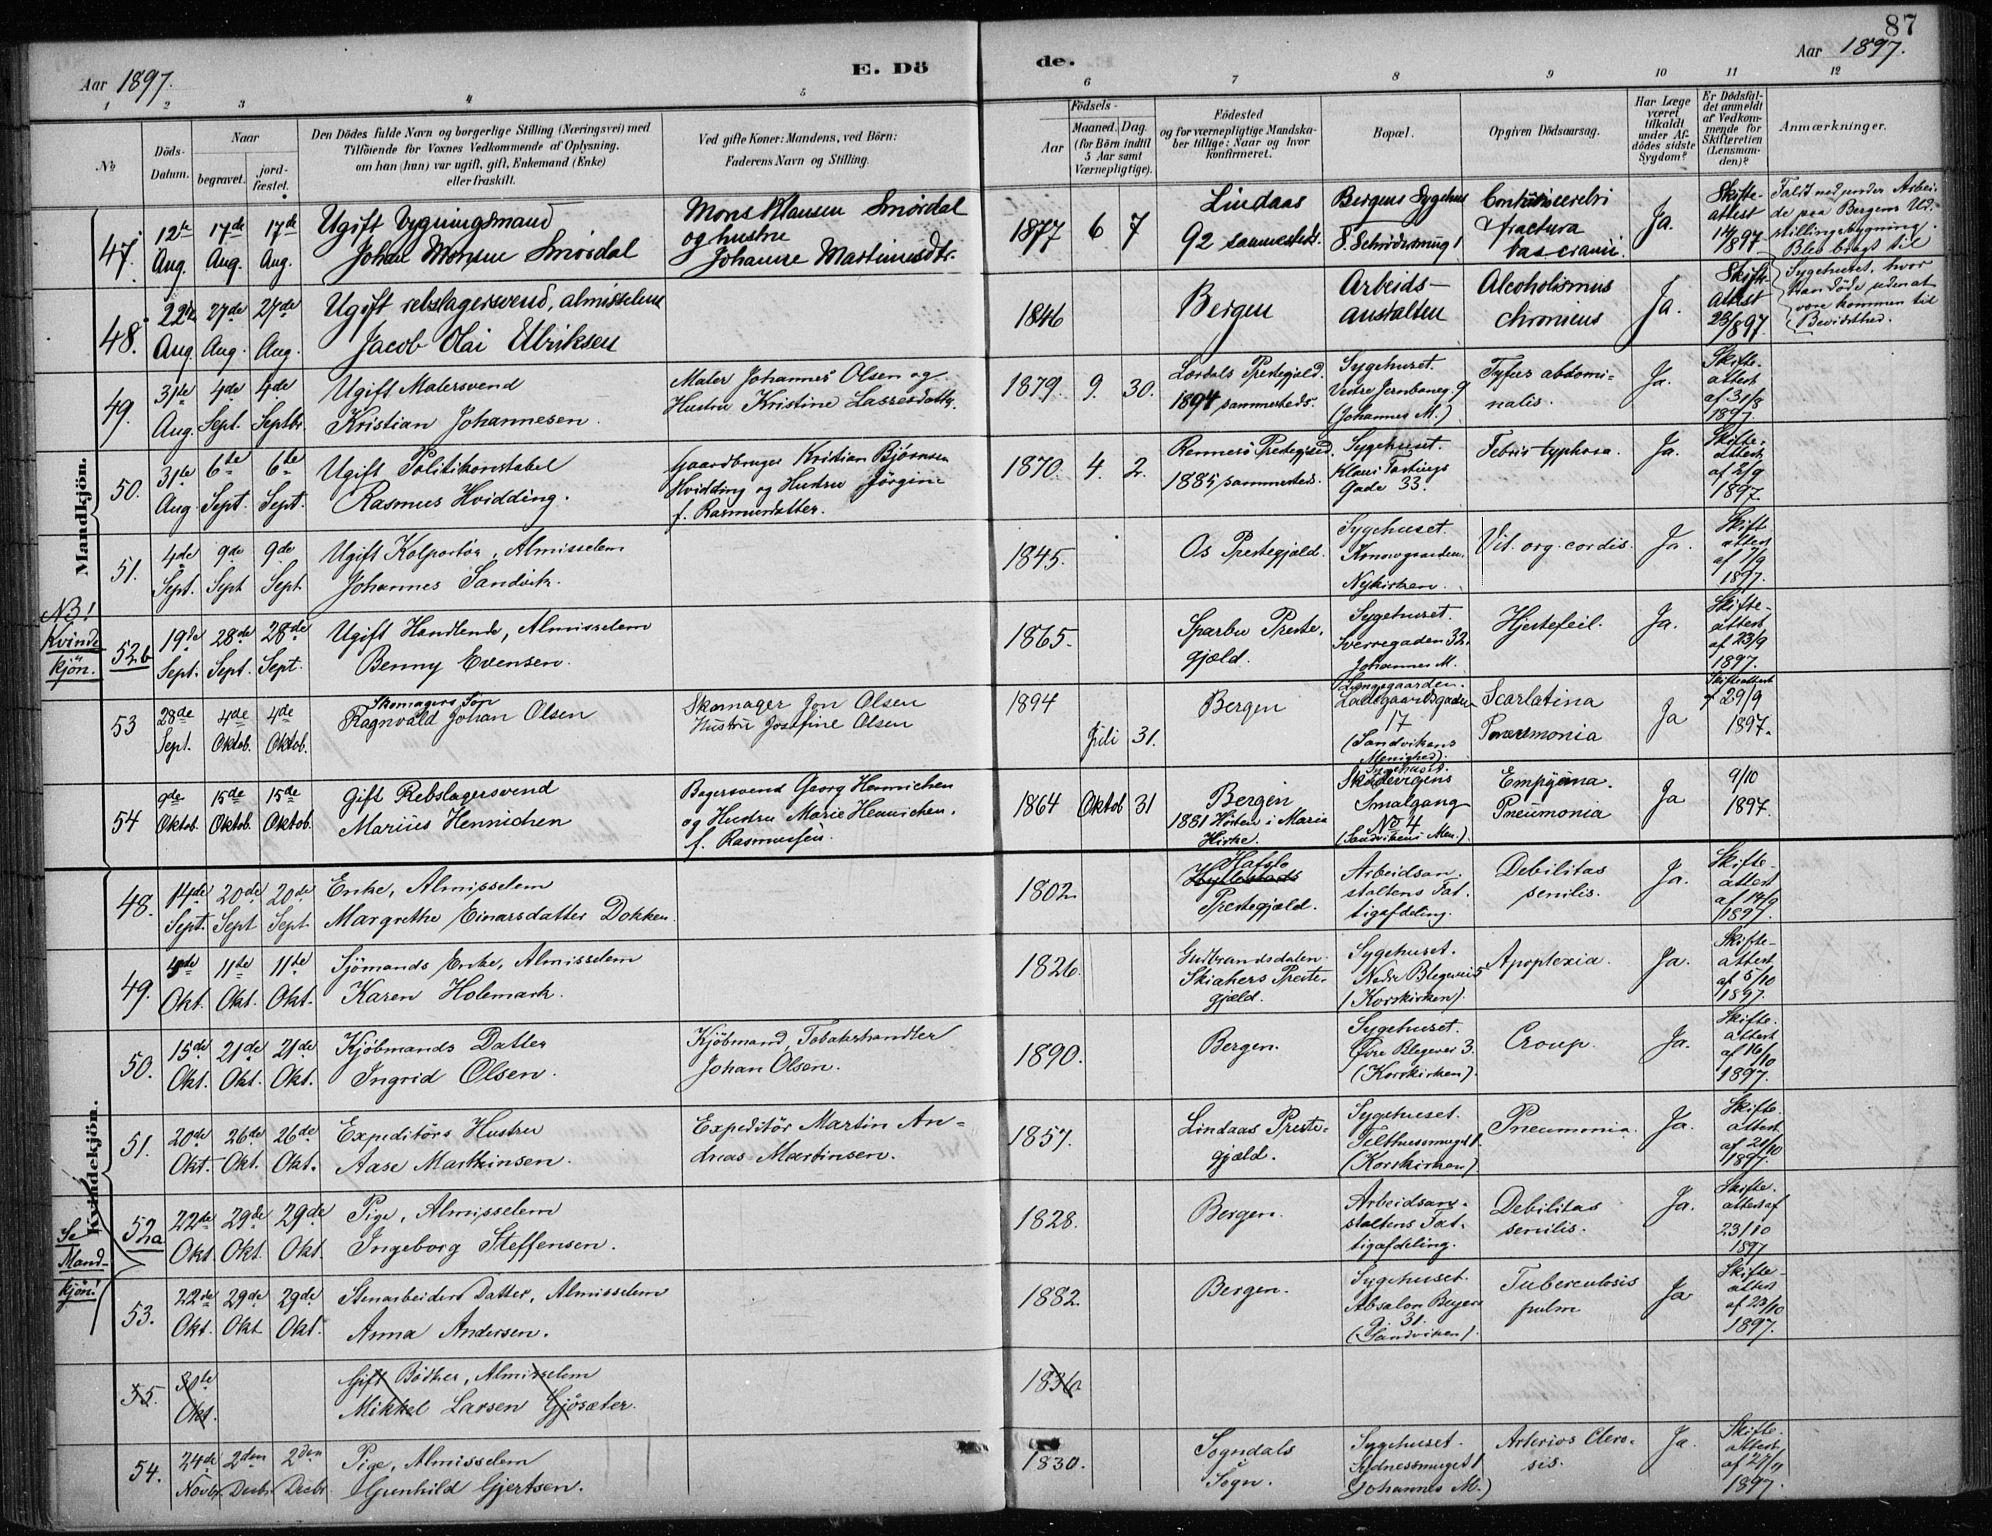 87
Aar 1897.
E. Dö
de.
Aar 1897.
1 2 3 4 5 6 7 8 9 10 11 12
No
Döds-
Datum.
Naar
begravet.
jord-
fæstet.
Den Dödes fulde Navn og borgerlige Stilling (Næringsvei) med
Tilföiende for Voxnes Vedkommende af Oplysning,
om han (hun) var ugift, gift, Enkemand (Enke)
eller fraskilt.
Ved gifte Koner: Mandens, ved Börn:
Faderens Navn og Stilling.
Födsels-
Aar
Maaned.
Dag.
(for Börn indtil
5 Aar samt
Værnepligtige).
Födested
og for værnepligtige Mandska-
ber tillige: Naar og hvor
konfirmeret.
Bopæl.
Opgiven Dödsaarsag.
Har Læge
været
tilkaldt
under Af-
dödes sidste
Sygdom?
Er Dödsfal-
det anmeldt
af Vedkom-
mende for
Skifteretten
(Lensman-
den)?
Anmærkninger.
Mandkjön.
47.
12te
Aug.
17de
Aug.
17de
Aug.
Ugift bygningsmand
Johan Monsen Smørdal
Mons Klausen Smørdal
og hustru
Johanne Martinusdtr.
1877 6 7
Lindaas
92 sammesteds.
Bergens Sygehus
fractura
bas cranii.
Ja.
Skifte-
attest
14/8 97
Faldt ned under Arbei-
de paa Bergens Ud-
stillingsbygning.
Blev bragt til
Sygehuset, hvor
han døde uden at
være kommen til
Bevidsthed.
48.
22de
Aug.
27de
Aug.
27de
Aug.
Ugift rebslagersvend, almisselem
Jacob Olai Ulriksen
1846
Bergen
Arbeids-
anstalten
Alcoholismus
chronicus
Ja.
Skifte-
attest
23/8 97.
49.
31te
Aug.
4de
Sept.
4de
Septbr.
Ugift Malersvend
Kristian Johannesen.
Maler Johannes Olsen og
Hustru Kristine Lassesdatter.
1879. 9. 30.
Lærdals Prestegjæld.
1894 sammesteds.
Sygehuset.
Vestre Jernbaneg. 9
(Johannes M.)
Tyfus abdomi-
nalis.
Ja.
Skifte-
attest
af 31/8
1897.
50.
31te
Aug.
6te
Sept.
6te
Sept.
Ugift Politikonstabel
Rasmus Hvidding.
Gaardbruger Kristian Bjørnsen
Hvidding og Hustru Jörgine
f. Rasmusdatter.
1870. 4. 2.
Rennesö Prestegjæld.
1885 sammesteds.
Sygehuset.
Gade 33.
Febris typhosa.
Ja.
Skifte-
attest
af 2/9
1897.
51.
4de
Sept.
9de
Sept
9de
Sept.
Ugift Kolportör, Almisselem
Johannes Sandvik.
1845.
Os Prestegjæld.
Sygehuset.
Nykirken.
Vit. org. cordis.
Ja.
Skifte-
attest
af 7/9
1897.
NB!
Kvinde
kjön.
52b
19de
Sept.
28de
Sept.
28de
Sept.
Ugift Handlende, Almisselem
Benny Evensen.
1865.
Sparbu Preste-
gjæld.
Sygehuset.
Sverregaden 32.
Johannes M.
Hjertefeil.
Ja.
Skifte-
attest
af 23/9
1897.
53
28de
Sept.
4de
Oktob.
4de
Oktob.
Skomagers Søn
Ragnvald Johan Olsen
Skomager Jon Olsen
Hustru Josefine Olsen
1894
Juli 31.
Bergen
Ladegaardsgaden
17
(Sandvikens
Menighed).
Scarlatina
Pneumonia
Ja
Skifteattest
af 29/9
1897.
54
9de
Oktob.
15de
Oktob.
15de
Oktob.
Gift Rebslagersvend
Marius Hennichen
Bagersvend Georg Hennichen
og Hustru Marie Hennichen.
f. Rasmussen.
1864 Oktob 31
Bergen
1881 Hösten i Maria
Kirke.
Sygehuset.
Skudevigens
Smalgang
No 4
(Sandvikens Men.).
Empyema.
Pneumonia
Ja
9/10
1897.
Kvindekjön.
48.
14de
Sept.
20de
Sept
20de
Sept.
Enke, Almisselem
Margrethe Einarsdatter Dokken.
1802.
Hafslo
Prestegjæld.
Arbeidsan-
staltens Fat-
tigafdeling.
Debilitas
senilis.
Ja.
Skifte-
attest
af 14/9
1897.
49.
4de
Okt.
11te
Okt.
11te
Okt.
Sjömands Enke, Almisselem
Karen Holemark.
1826.
Gudbrandsdalen.
Skiakers Preste-
gjæld.
Sygehuset.
Nedre Blegevei 5
(Korskirken).
Apoplexia.
Ja.
Skifte-
attest
af 5/10
1897.
50.
15de
Okt.
21de
Okt.
21de
Okt.
Kjöbmands Datter
Ingrid Olsen.
Kjöbmand, Tobakshandler
Johan Olsen.
1890.
Bergen.
Sygehuset.
Övre Blegevei 3.
(Korskirken).
Croup.
Ja.
Skifte-
attest
af 16/10
1897.
51.
20de
Okt.
26de
Okt.
26de
Okt.
Expeditörs Hustru
Aase Martinsen.
Expeditör Martin An-
dreas Martinsen.
1857.
Lindaas Preste-
gjæld.
Sygehuset.
Telthussmuget 1.
(Korskirken)
Pneumonia.
Ja.
Skifte-
attest
af 21/10
1897.
Se
Mand-
kjön!
52a
22de
Okt.
29de
Okt.
29de
Okt.
Pige, Almisselem
Ingeborg Steffensen.
1828.
Bergen.
Arbeidsan-
staltens Fat-
tigafdeling.
Debilitas
senilis.
Ja.
Skifte-
attest af
23/10
1897
53.
22de
Okt.
29de
Okt
29de
Okt.
Stenarbeiders Datter, Almisselem
Anna Andersen.
1882.
Bergen.
Sygehuset.
Absalon Beyers
g. 31.
(Sandviken).
Tuberculosis
pulm
Ja
Skifte-
attest
af 23/10
1897.
55.
30te
Okt.
Gift Bödker, Almisselem
Mikkel Larsen Gjösæter.
1836
54.
24de
Novbr.
2den
Decbr.
2den
Decbr
Pige, Almisselem
Gunhild Gjertsen.
1830.
Sogndals
Sogn.
Sygehuset.
Sydnessmuget 1
(Johannes M.)
Arterios Clero-
sis.
Ja.
Skifte-
attest
af 27/11
1897.